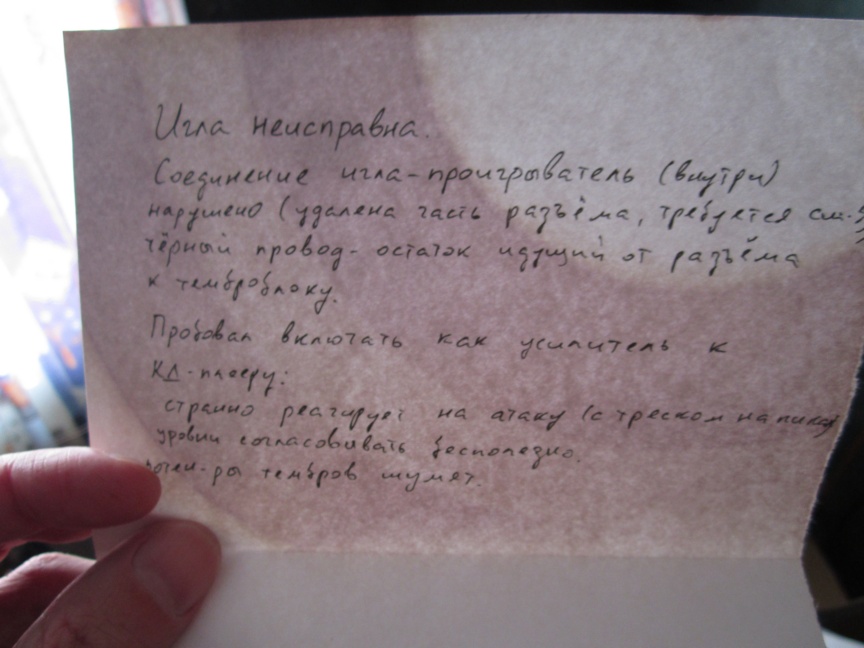 Игла неисправна.
Соединение игла-проигрыватель (внутри)
нарушено (удалена часть разъёма, требуется см.
чёрный провод- остаток идущий от разъёма
к темброблоку.
Пробовал включать как усилитель к
КД-плееру:
странно реагирует на атаку (с треском на пиках)
уровни согласовывать бесполезно.
потен-ры тембров шумят.